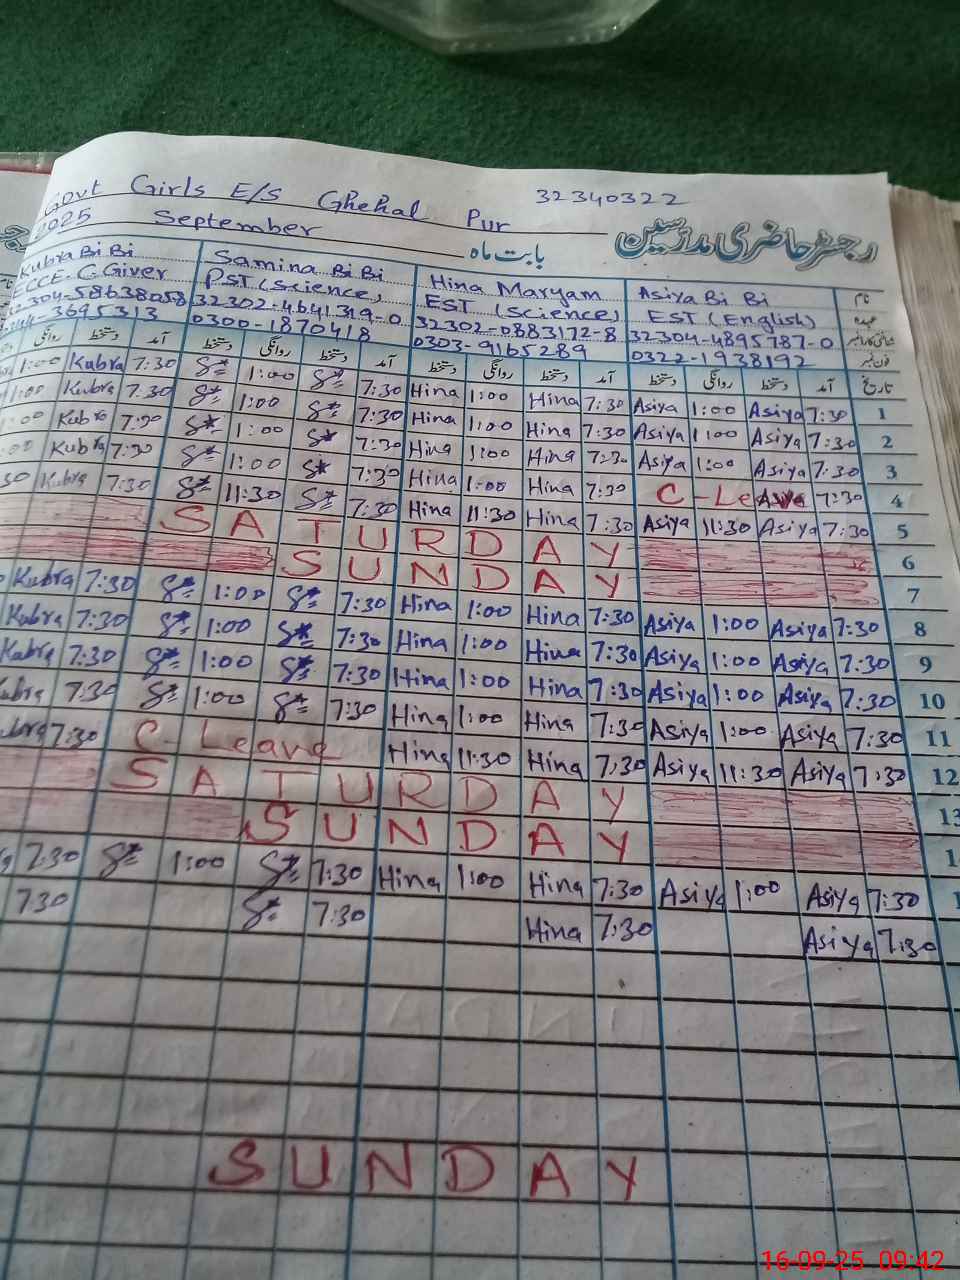 Govt Girls E/S Ghehal Pur 32340322
2025 September بابت ماہ رجسٹر حاضری مدرسین
Kubra Bi Bi Samina Bi Bi Hina Maryam Asiya Bi Bi نام
ECCE-C.Giver PST (science) EST (science) EST (English) عہدہ
32304-5863805 32302-4641319-0 32302-0883172-8 32304-4895787-0
3695313 0300-1870418 0303-9165289 0322-1938192 فون نمبر
روانگی دستخط آمد دستخط روانگی دستخط آمد دستخط روانگی دستخط آمد دستخط روانگی دستخط آمد تاریخ
1:00 Kubra 7:30 1:00 7:30 Hina 1:00 Hina 7:30 Asiya 1:00 Asiya 7:30 1
1:00 Kubra 7.30 1:00 7:30 Hina 1:00 Hina 7:30 Asiya 1:00 Asiya 7:30 2
:00 Kubra 7:30 1:00 7:30 Hina 1:00 Hina 7:30 Asiya 1:00 Asiya 7:30 3
:00 Kubra 7:30 1:00 7:30 Hina 1:00 Hina 7:30 C-Le 7:30 4
30 Kubra 7:30 11:30 7:30 Hina 11:30 Hina 7:30 Asiya 11:30 Asiya 7:30 5
SATURDAY 6
SUNDAY 7
Kubra 7:30 1:00 7:30 Hina 1:00 Hina 7:30 Asiya 1:00 Asiya 7:30 8
Kubra 7:30 1:00 7:30 Hina 1:00 Hina 7:30 Asiya 1:00 Asiya 7:30 9
Kubra 7:30 1:00 7:30 Hina 1:00 Hina 7:30 Asiya 1:00 Asiya 7:30 10
ubra 7:30 1:00 7:30 Hina 1:00 Hina 7:30 Asiya 1:00 Asiya 7:30 11
ubra 7:30 C-Leave Hina 11:30 Hina 7:30 Asiya 11:30 Asiya 7:30 12
SATURDAY 13
SUNDAY 1
7:30 1:00 7:30 Hina 1:00 Hina 7:30 Asiya 1:00 Asiya 7:30 1
730 7:30 Hina 7:30 Asiya 7:30
SUNDAY
16-09-25 09:42